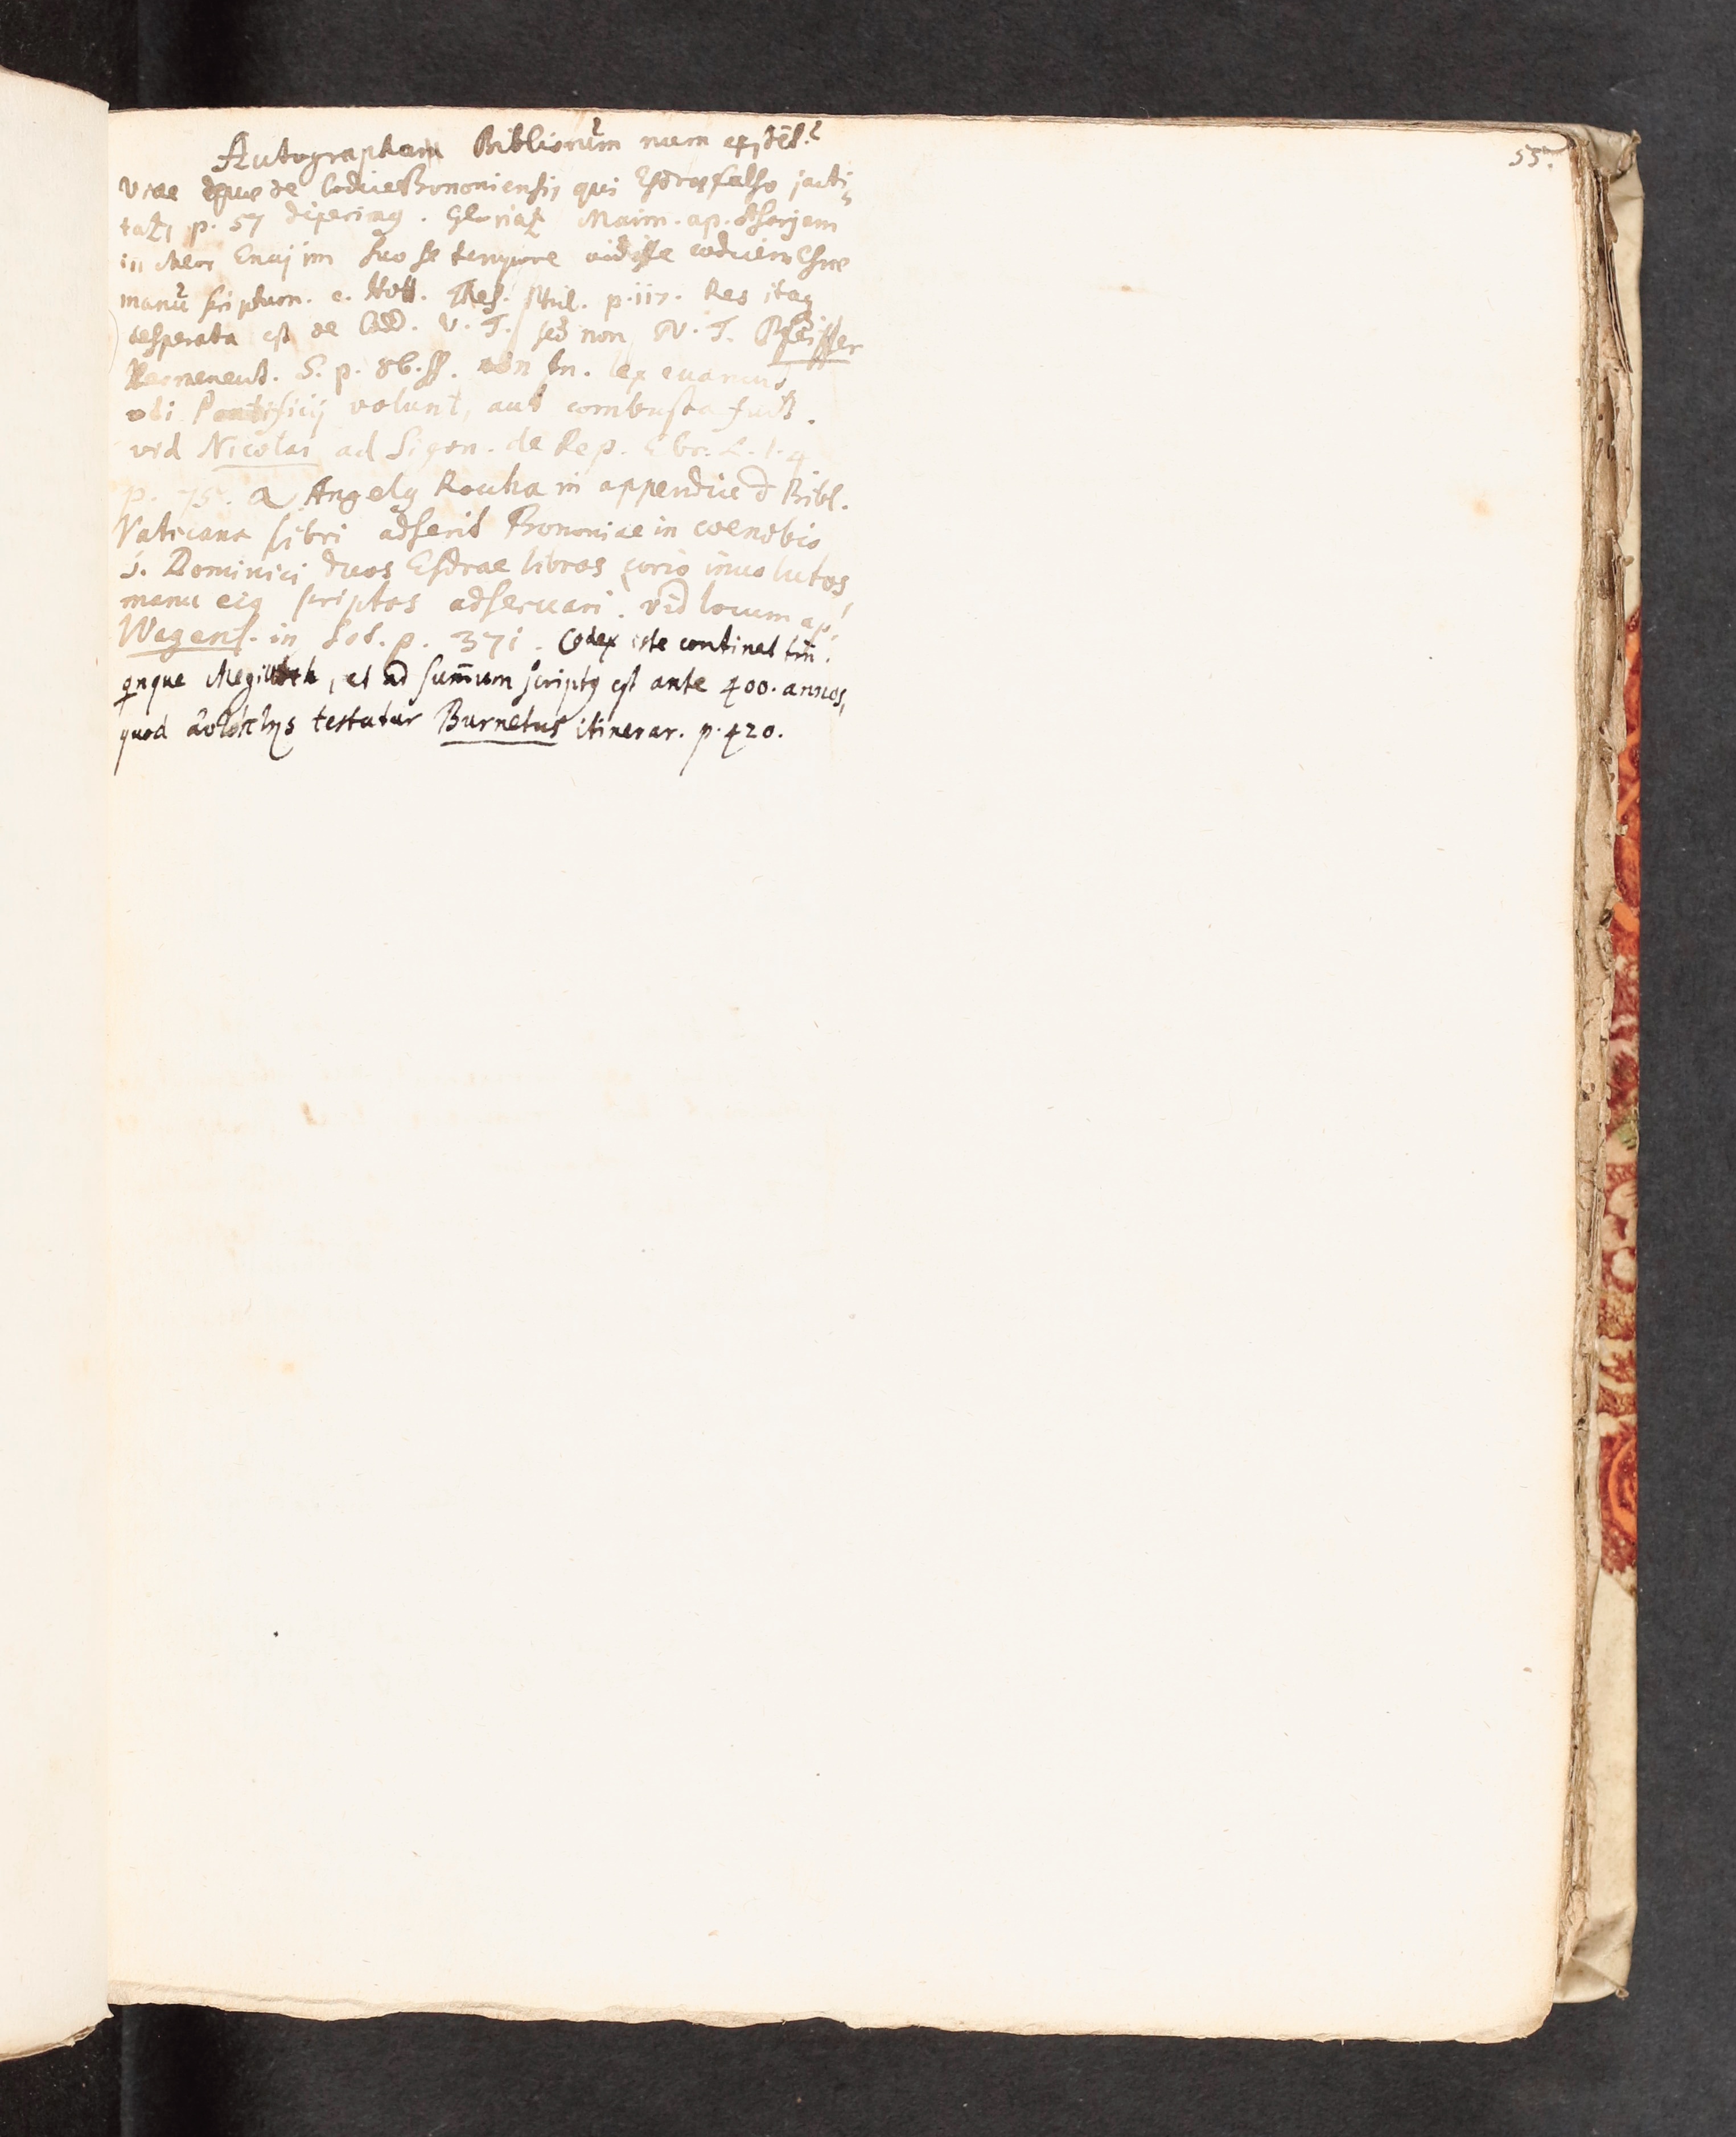 55.
Autographum Bibliorum num exstet?
Vide de Codice Bononiensi, qui Esdrae falso jacti
tatr, p. 57 diximus. Gloriatr Maim. ap. Asarjam
in Meor Enajim suo se tempore vidisse codicem Esrae
manu scriptum. e. Hott. Thes. Phil. p. 117. Res itaq
desperata est de Codd. V. T. sed non N. T. Pfeiffer
Hermeneut. S. p. 86. ff. non tn. lex evanuit
uti Pontificij volunt, aut combusta fuit.
vid Nicolai ad Sigon. de Rep. Ebr. L. 1. 4
p. 75. Angelus Roccha in appendice d Bibl.
Vaticana libri adserit Bononiae in coenobio
S. Dominici duos Esdrae libros corio involutos,
manu eius scriptos adservari. vid locum ap.
Wagens. in Sot. p. 371. Codex iste continet tm.
qnque Megilloth, et ad sum̄um scriptus est ante 400. annos,
quod αὐτόπτης testatur Burnetus itinerar. p. 420.